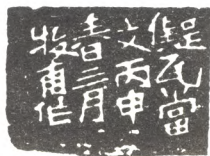 儗瓦當
文丙申
春三月
牧甫作